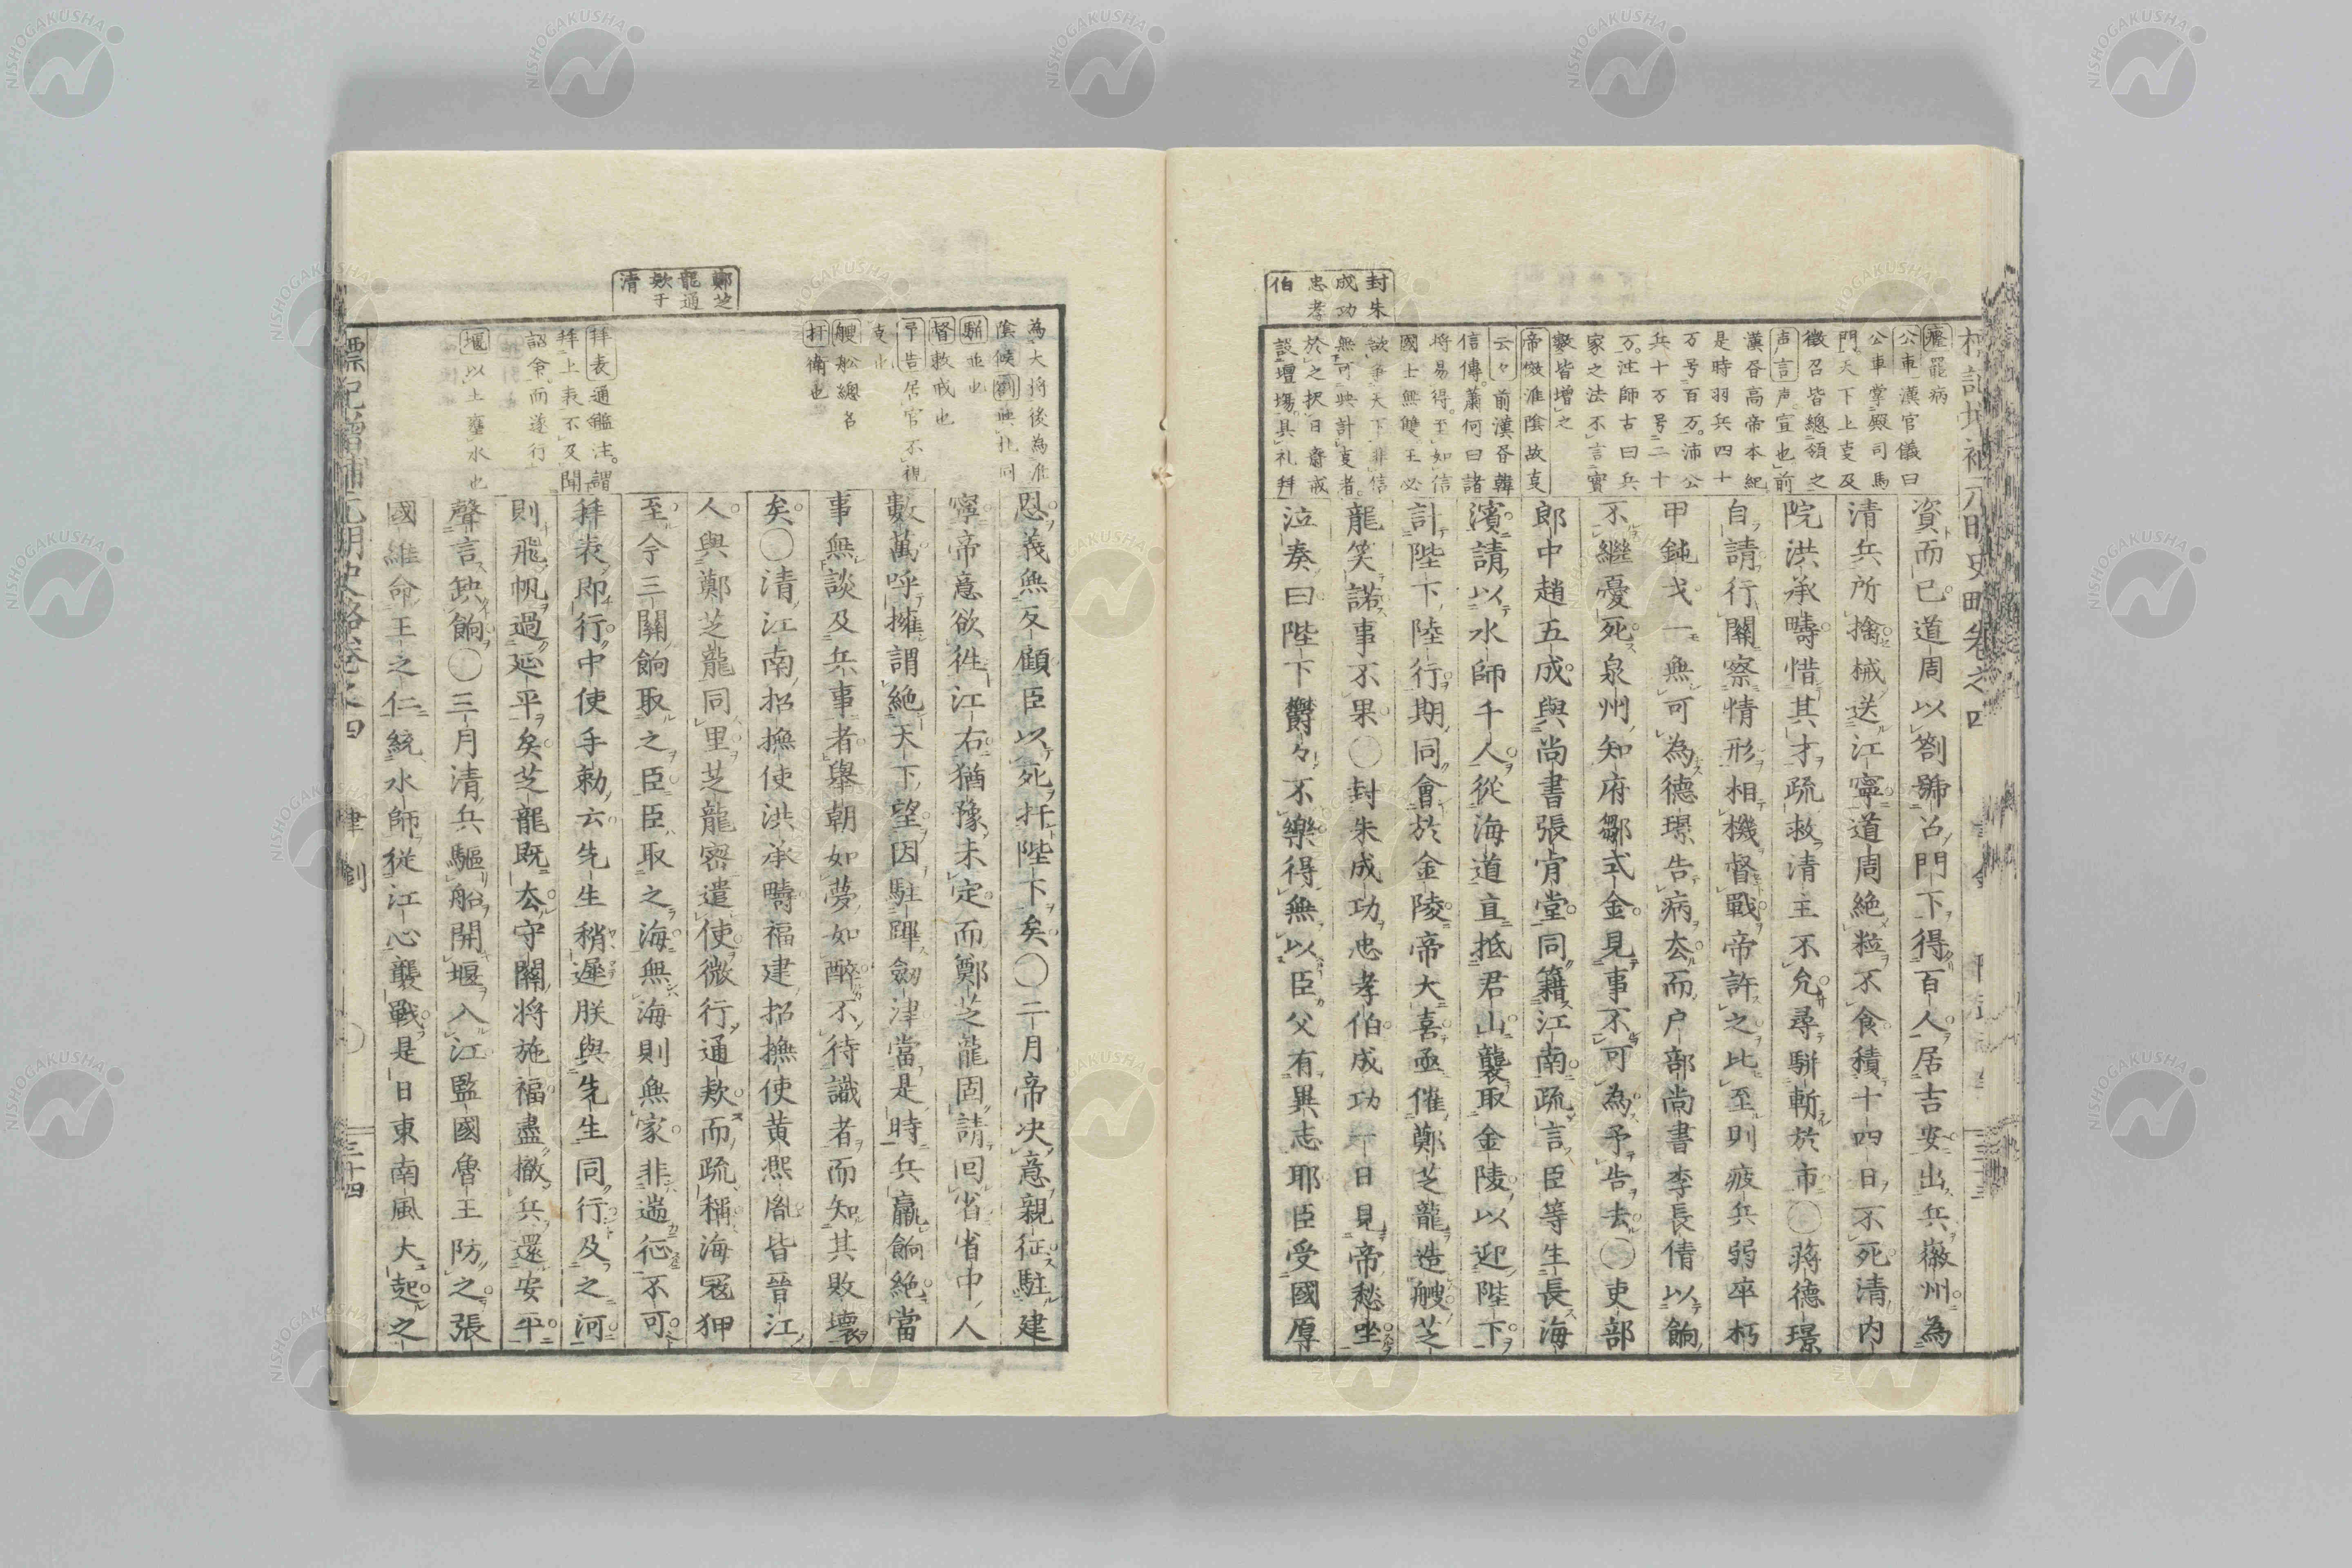 封朱
成功
忠孝
伯
癃罷病
公車漢官儀曰
公車掌殿司馬
門天下上支及
徴召皆總領之
声言声宣也前
漢昝高帝本紀
是時羽兵四十
万号百万沛公
兵十万号二十
万。注師古曰兵
家之法不言實
數皆增之
帝傚淮陰故支
云々前漢昝韓
信傳。蕭何曰諸
将易得。至如信
國士無雙王必
欲爭天下非信
無可與計支者。
於之択日齋戒
設壇場。具礼拜
資而已道周以劄號召門下得百人居吉安出兵徽州為
清兵所擒械送江寧道周絶粒不食積十四日不死清内
院洪承疇惜其才疏救清主不允尋駢斬於市〇蒋德璟
自請行關察情形相機督戰帝許之比至則疲兵弱卒朽
甲鈍戈一無可為德璟告病厺而户部尚書李長倩以餉
不繼憂死泉州知府鄒式金見事不可為予告去〇吏部
郎中趙五成與尚書張肯堂同籍江南疏言臣等生長海
濱請以水師千人從海道直抵君山襲取金陵以迎陛下
計陛下陸行期同會於金陵帝大喜亟催鄭芝龍造艘芝
龍笑諾事不果〇封朱成功忠孝伯成功一日見帝愁坐
泣奏曰陛下鬱々不樂得無以臣父有異志耶臣受國厚
鄭芝
龍通
欵于
清
為大将後為淮
陰候劄與札同
駢並也
督救戒也
予告居官不視
支也
艘舩總名
扞衛也
拜表通鑑注。謂
拜上表不及聞
詔令而遂行
堰以土壅水也
恩義無反顧臣以死扞陛下矣〇二月帝决意親征駐建
寧帝意欲徃江右猶豫未定而鄭芝龍固請回省省中人
數萬呼擁謂絶天下望因駐蹕劔津當是時兵羸餉絶當
事無談及兵事者舉朝如夢如醉不待識者而知其敗壞
矣〇清江南招撫使洪承疇福建招撫使黄熙胤皆晉江
人與鄭芝龍同里芝龍密遣使微行通欵而疏稱海冦狎
至今三關餉取之臣臣取之海無海則無家非遄征不可
拜表即行中使手勅云先生稍遲朕與先生同行及之河
則飛帆過延平矣芝龍既厺守關將施福盡撤兵還安平
聲言缺餉〇三月清兵驅船開堰入江監國魯王防之張
國維命王之仁統水師從江心襲戰是日東南風大起之
標記增補元明史略卷之四
三十四